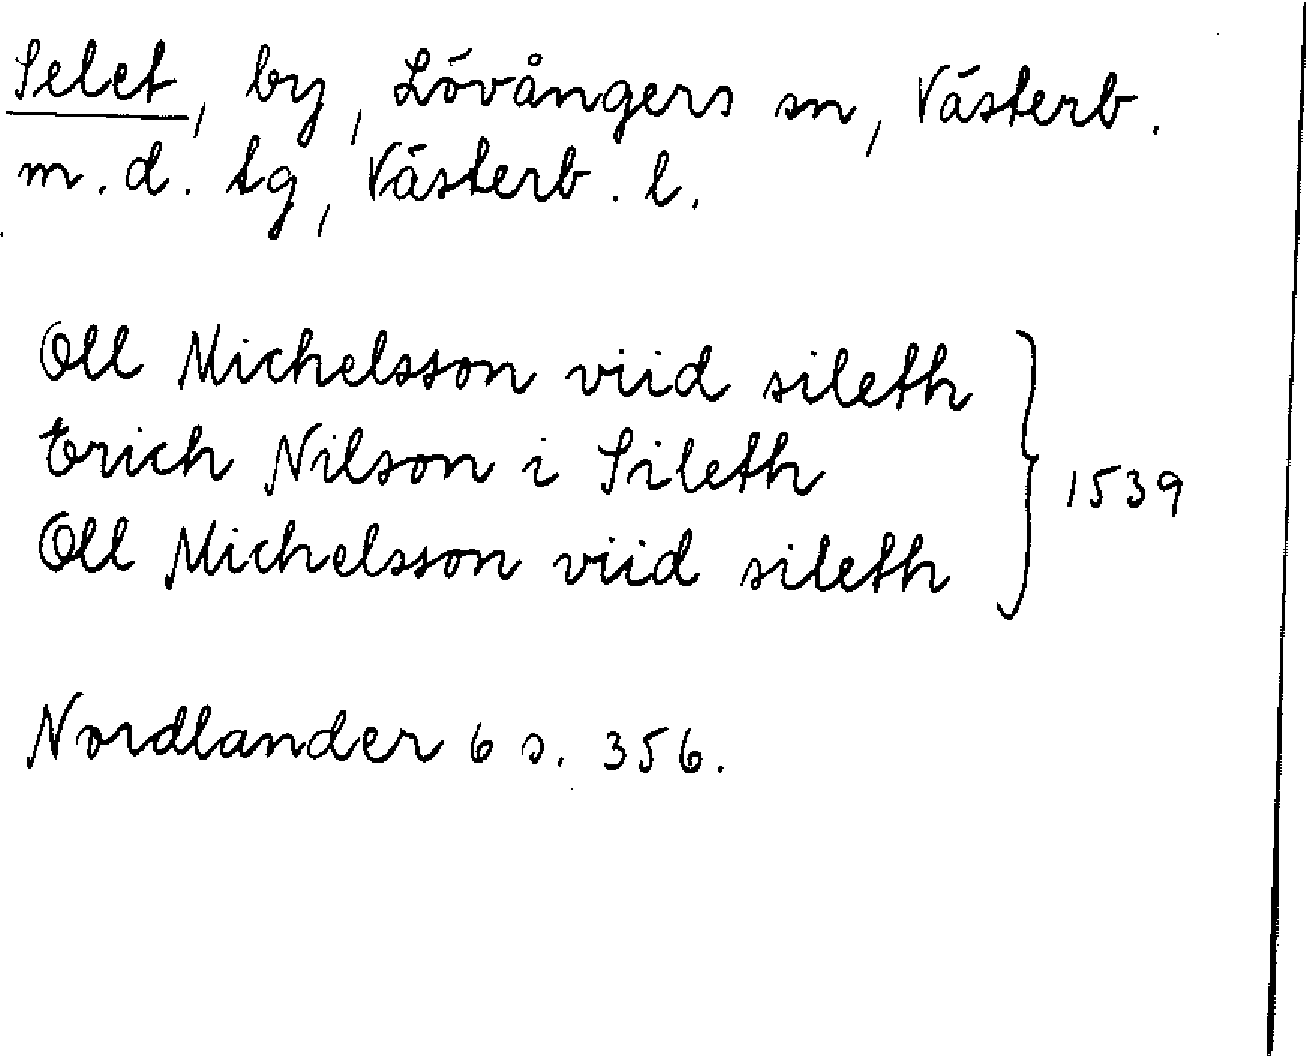 Selet, by, Lövångers sn, Västerb.
m. d. tg, Västerb. l.
Oll Michelsson viid sileth
Erich Nilson i Sileth
Oll Michelsson viid sileth
1539
Nordlander 6 s. 356.